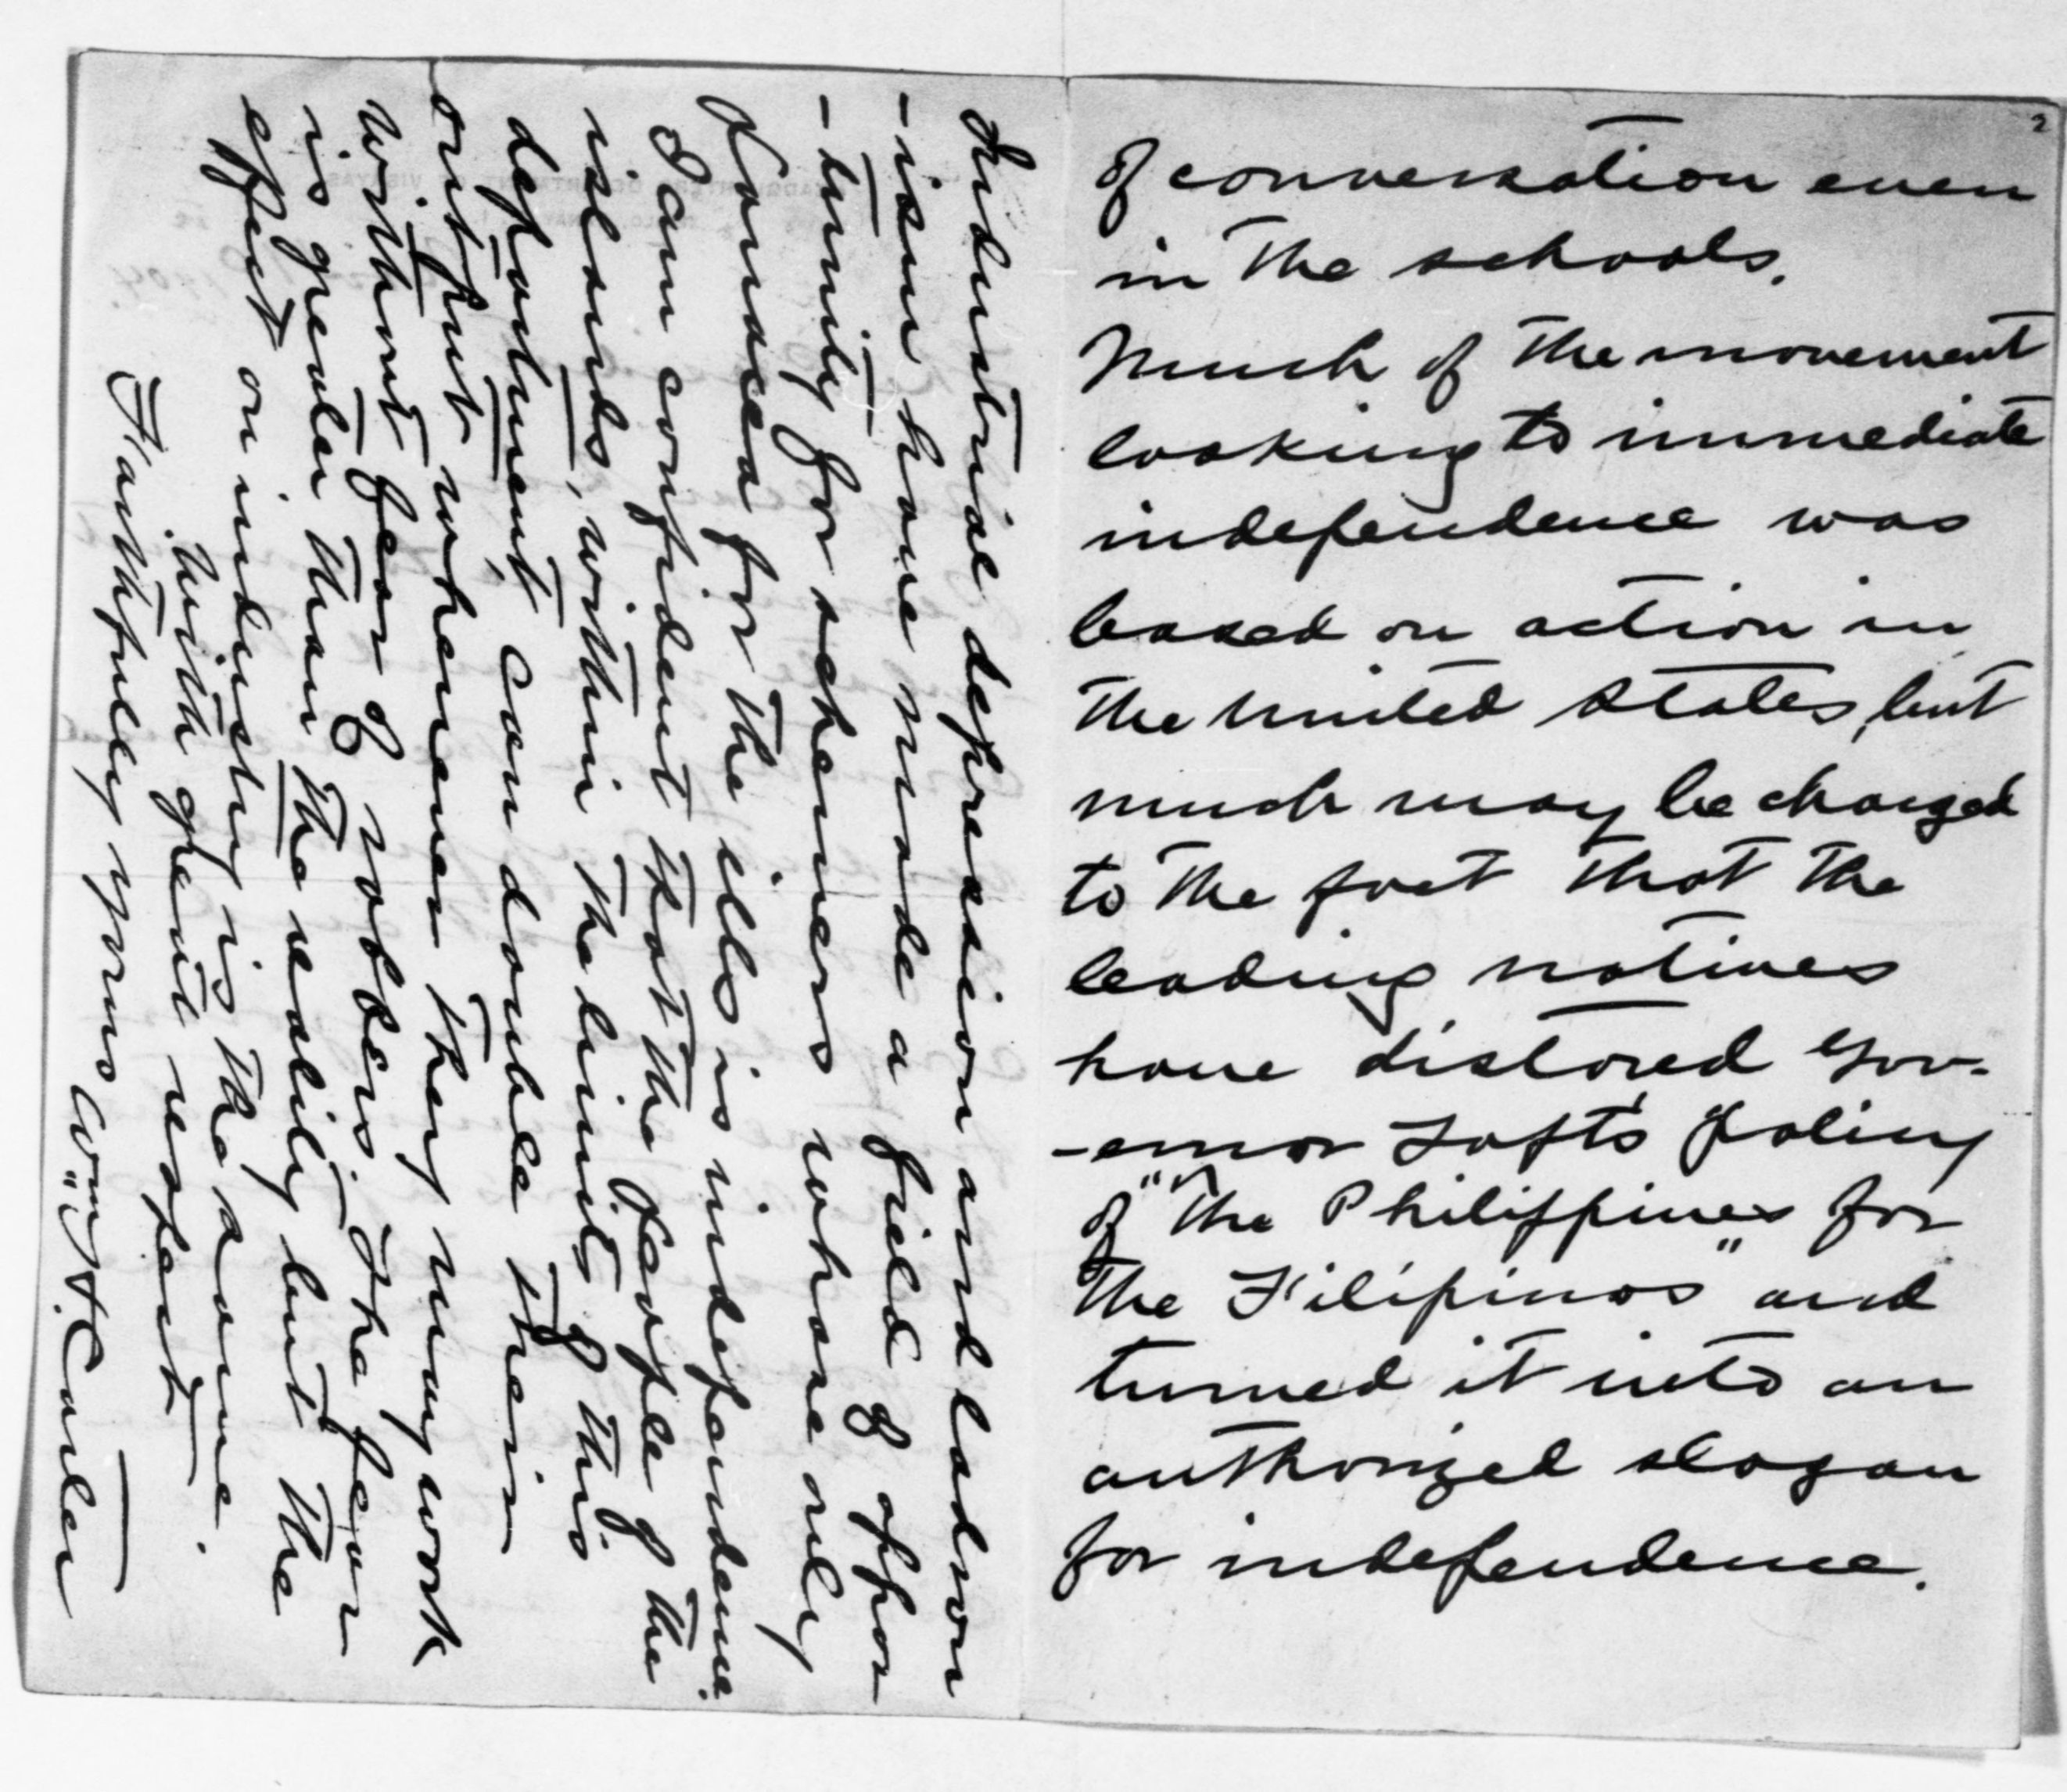 2
of conversation even
in the schools.
Much of the movement
looking to immediate
independence was
based on action in
the United States, but
much may be charged
to the fact that the
leading natives
have distored Gov-
-ernor Taft's policy
of "The Philippines for
the Filipinos" and
turned it into an
authorized slogan
for independence.
Industrial depression and ladron
-ism have made a field of oppor
-tunity for schemers whose only
panacea for the ills is independence.
I am confident that the people of the
islands, within the limits of this
department, can double their
output whenever they may work
without fear of robbers. The fear
is greater than the reality but the
effect on industry is the same.
With great respect
Faithfully yours Wm H. Carter